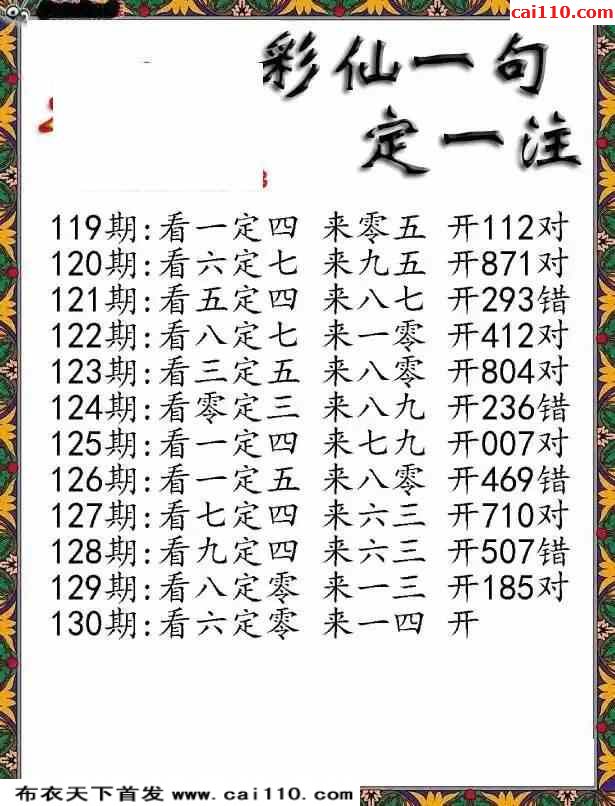 cai110.com
彩仙一句
定一注
119期:看一定四 来零五 开112对
120期:看六定七 来九五 开871对
121期:看五定四 来八七 开293错
122期:看八定七 来一零 开412对
123期:看三定五 来八零 开804对
124期:看零定三 来八九 开236错
125期:看一定四 来七九 开007对
126期:看一定五 来八零 开469错
127期:看七定四 来六三 开710对
128期:看九定四 来六三 开507错
129期:看八定零 来一三 开185对
130期:看六定零 来一四 开
布衣天下首发 www.cai110.com